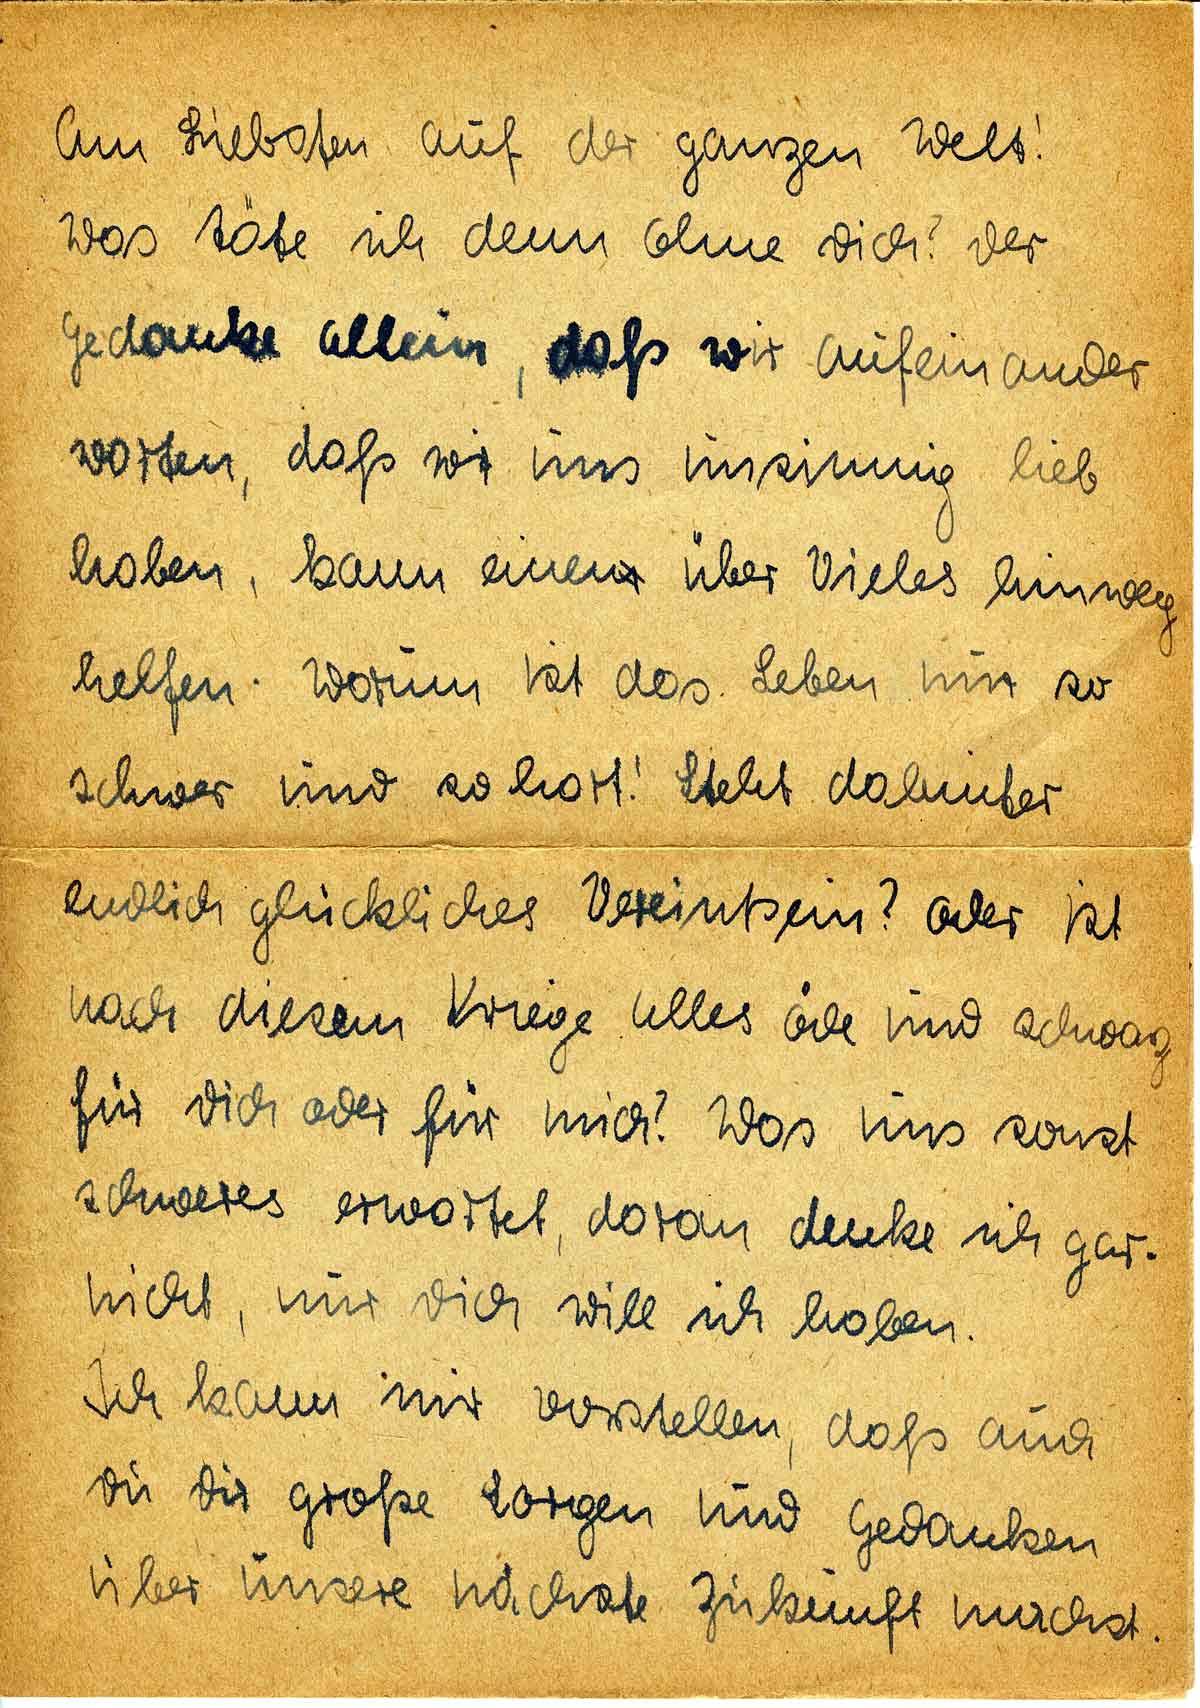 Am Liebsten auf der ganzen Welt!
Was täte ich denn ohne dich? Der
Gedanke allein, daß wir aufeinander
warten, daß wir uns unsinnig lieb
haben, kann einem über Vieles hinweg
helfen. Warum ist das Leben nur so
schwer und so hart! Steht dahinter
endlich glückliches Vereintsein? Oder ist
nach diesem Kriege Alles öde und schwarz
für dich oder für mich? Was uns sonst
schweres erwartet, daran denke ich gar-
nicht, nur dich will ich haben.
Ich kann mir vorstellen, daß auch
du dir große Sorgen und Gedanken
über unsere nächste Zukunft machst.